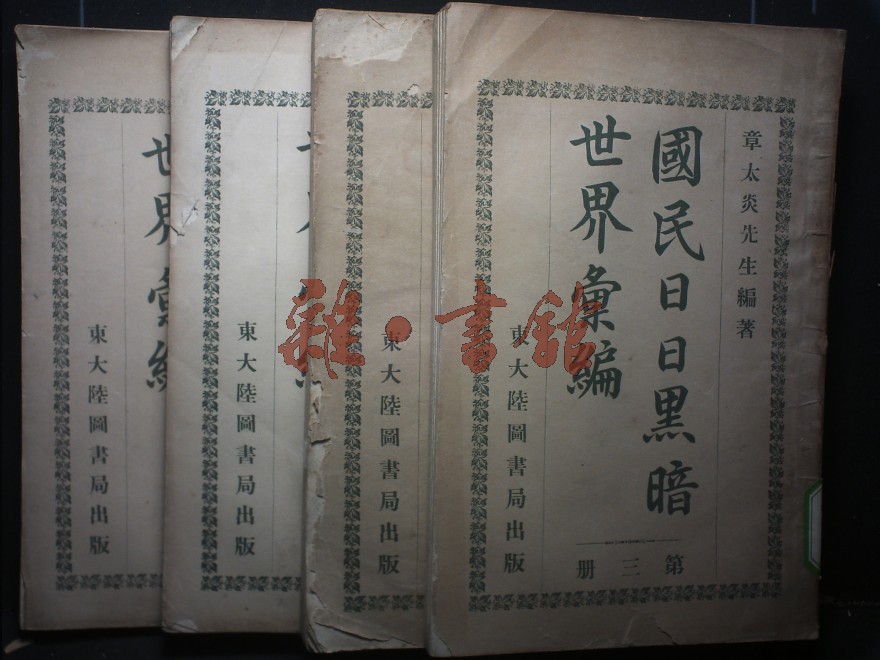 章太炎先生編著
國民日日黑暗
世界彙編
第三冊
東大陸圖書局出版
東大陸圖書局出版
世界
東大陸圖書局出版
世界彙編
東大陸圖書局出版
雜·書館